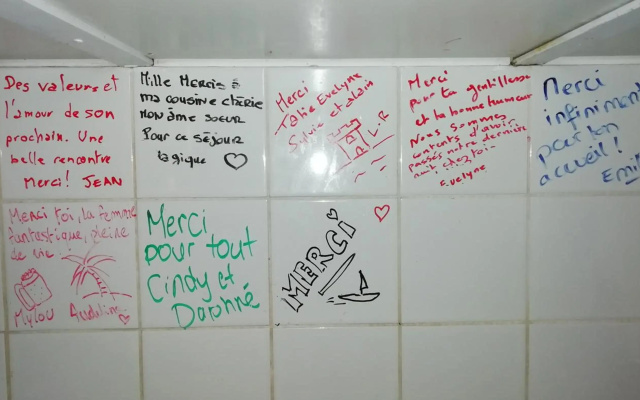 Des valeurs et
l'amour de son
prochain. Une
belle rencontre
Merci! JEAN
Mille Mercis à
ma cousine chérie
mon âme soeur
Pour ce séjour
magique
Merci
Tatie Evelyne
Sylvie et alain
L.R
Merci
pour ta gentillesse
et ta bonne humeur
Nous sommes
contents d'avoir
passés notre dernière
nuit chez toi
Evelyne
Merci
infiniment
pour ton
accueil!
Emi
Merci toi, la femme
fantastique, pleine
de vie
Mylou
Merci
pour tout
Cindy et
Daphné
MERCI